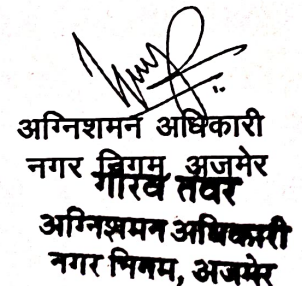 अग्निशमन अधिकारी
नगर निगम, अजमेर
गौरव तंवर
अग्निशमन अधिकारी
नगर निगम, अजमेर